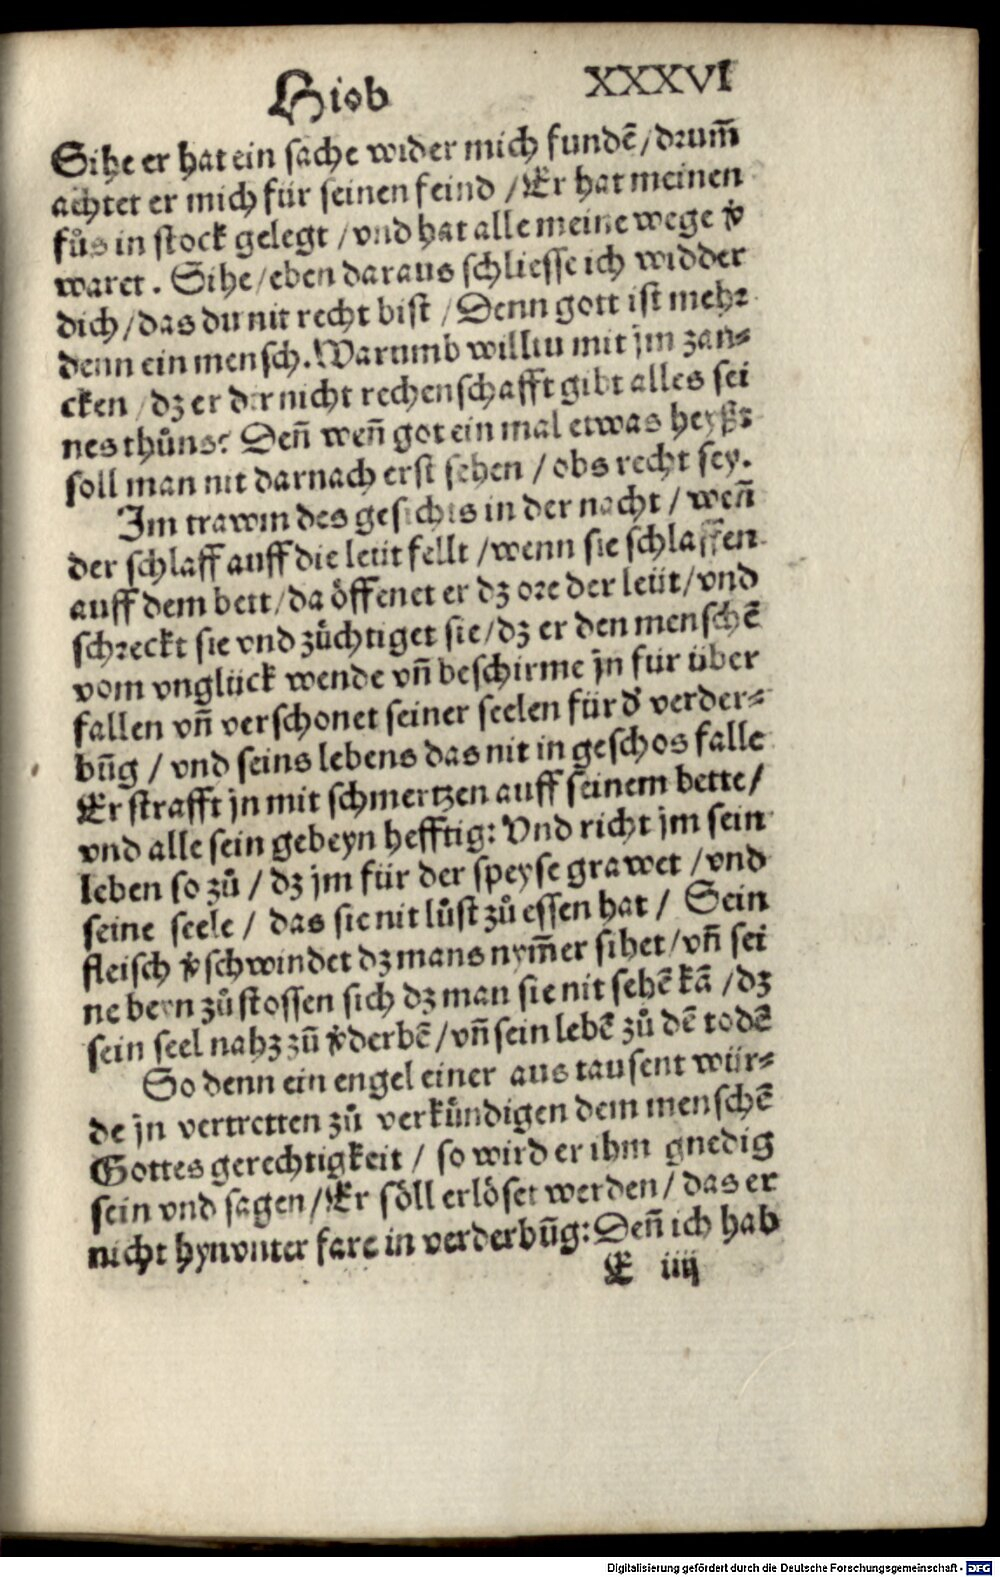 Hiob XXXVI
Sihe er hat ein sache wider mich fundē / drum̄
achtet er mich für seinen feind / Er hat meinen
fůs in stock gelegt / vnd hat alle meine wege ꝟ
waret . Sihe / eben daraus schliesse ich widder
dich / das du nit recht bist / Denn gott ist mehr
denn ein mensch. Warumb willtu mit jm zan⸗
cken / dz er dir nicht rechenschafft gibt alles sei
nes thůns? Den̄ wen̄ got ein mal etwas heyßt
soll man nit darnach erst sehen / obs recht sey.
Im trawm des gesichts in der nacht / wen̄
der schlaff auff die leüt fellt / wenn sie schlaffen
auff dem bett / da öffenet er dz ore der leüt / vnd
schreckt sie vnd züchtiget sie / dz er den menschē
vom vnglück wende vn̄ beschirme jn für über
fallen vn̄ verschonet seiner seelen für d' verder⸗
būg / vnd seins lebens das nit in geschos falle
Er strafft jn mit schmertzen auff seinem bette /
vnd alle sein gebeyn hefftig: Vnd richt jm sein
leben so zů / dz jm für der speyse grawet / vnd
seine seele / das sie nit lůst zů essen hat / Sein
fleisch ꝟschwindet dz mans nym̄er sihet / vn̄ sei
ne beyn zůstossen sich dz man sie nit sehē kā / dz
sein seel nahz zū ꝟderbē / vn̄ sein lebē zů dē todē
So denn ein engel einer aus tausent wür⸗
de jn vertretten zů verkündigen dem menschē
Gottes gerechtigkeit / so wird er ihm gnedig
sein vnd sagen / Er söll erlöset werden / das er
nicht hynvnter fare in verderbūg: Den̄ ich hab
E iiij
Digitalisierung gefördert durch die Deutsche Forschungsgemeinschaft - DFG